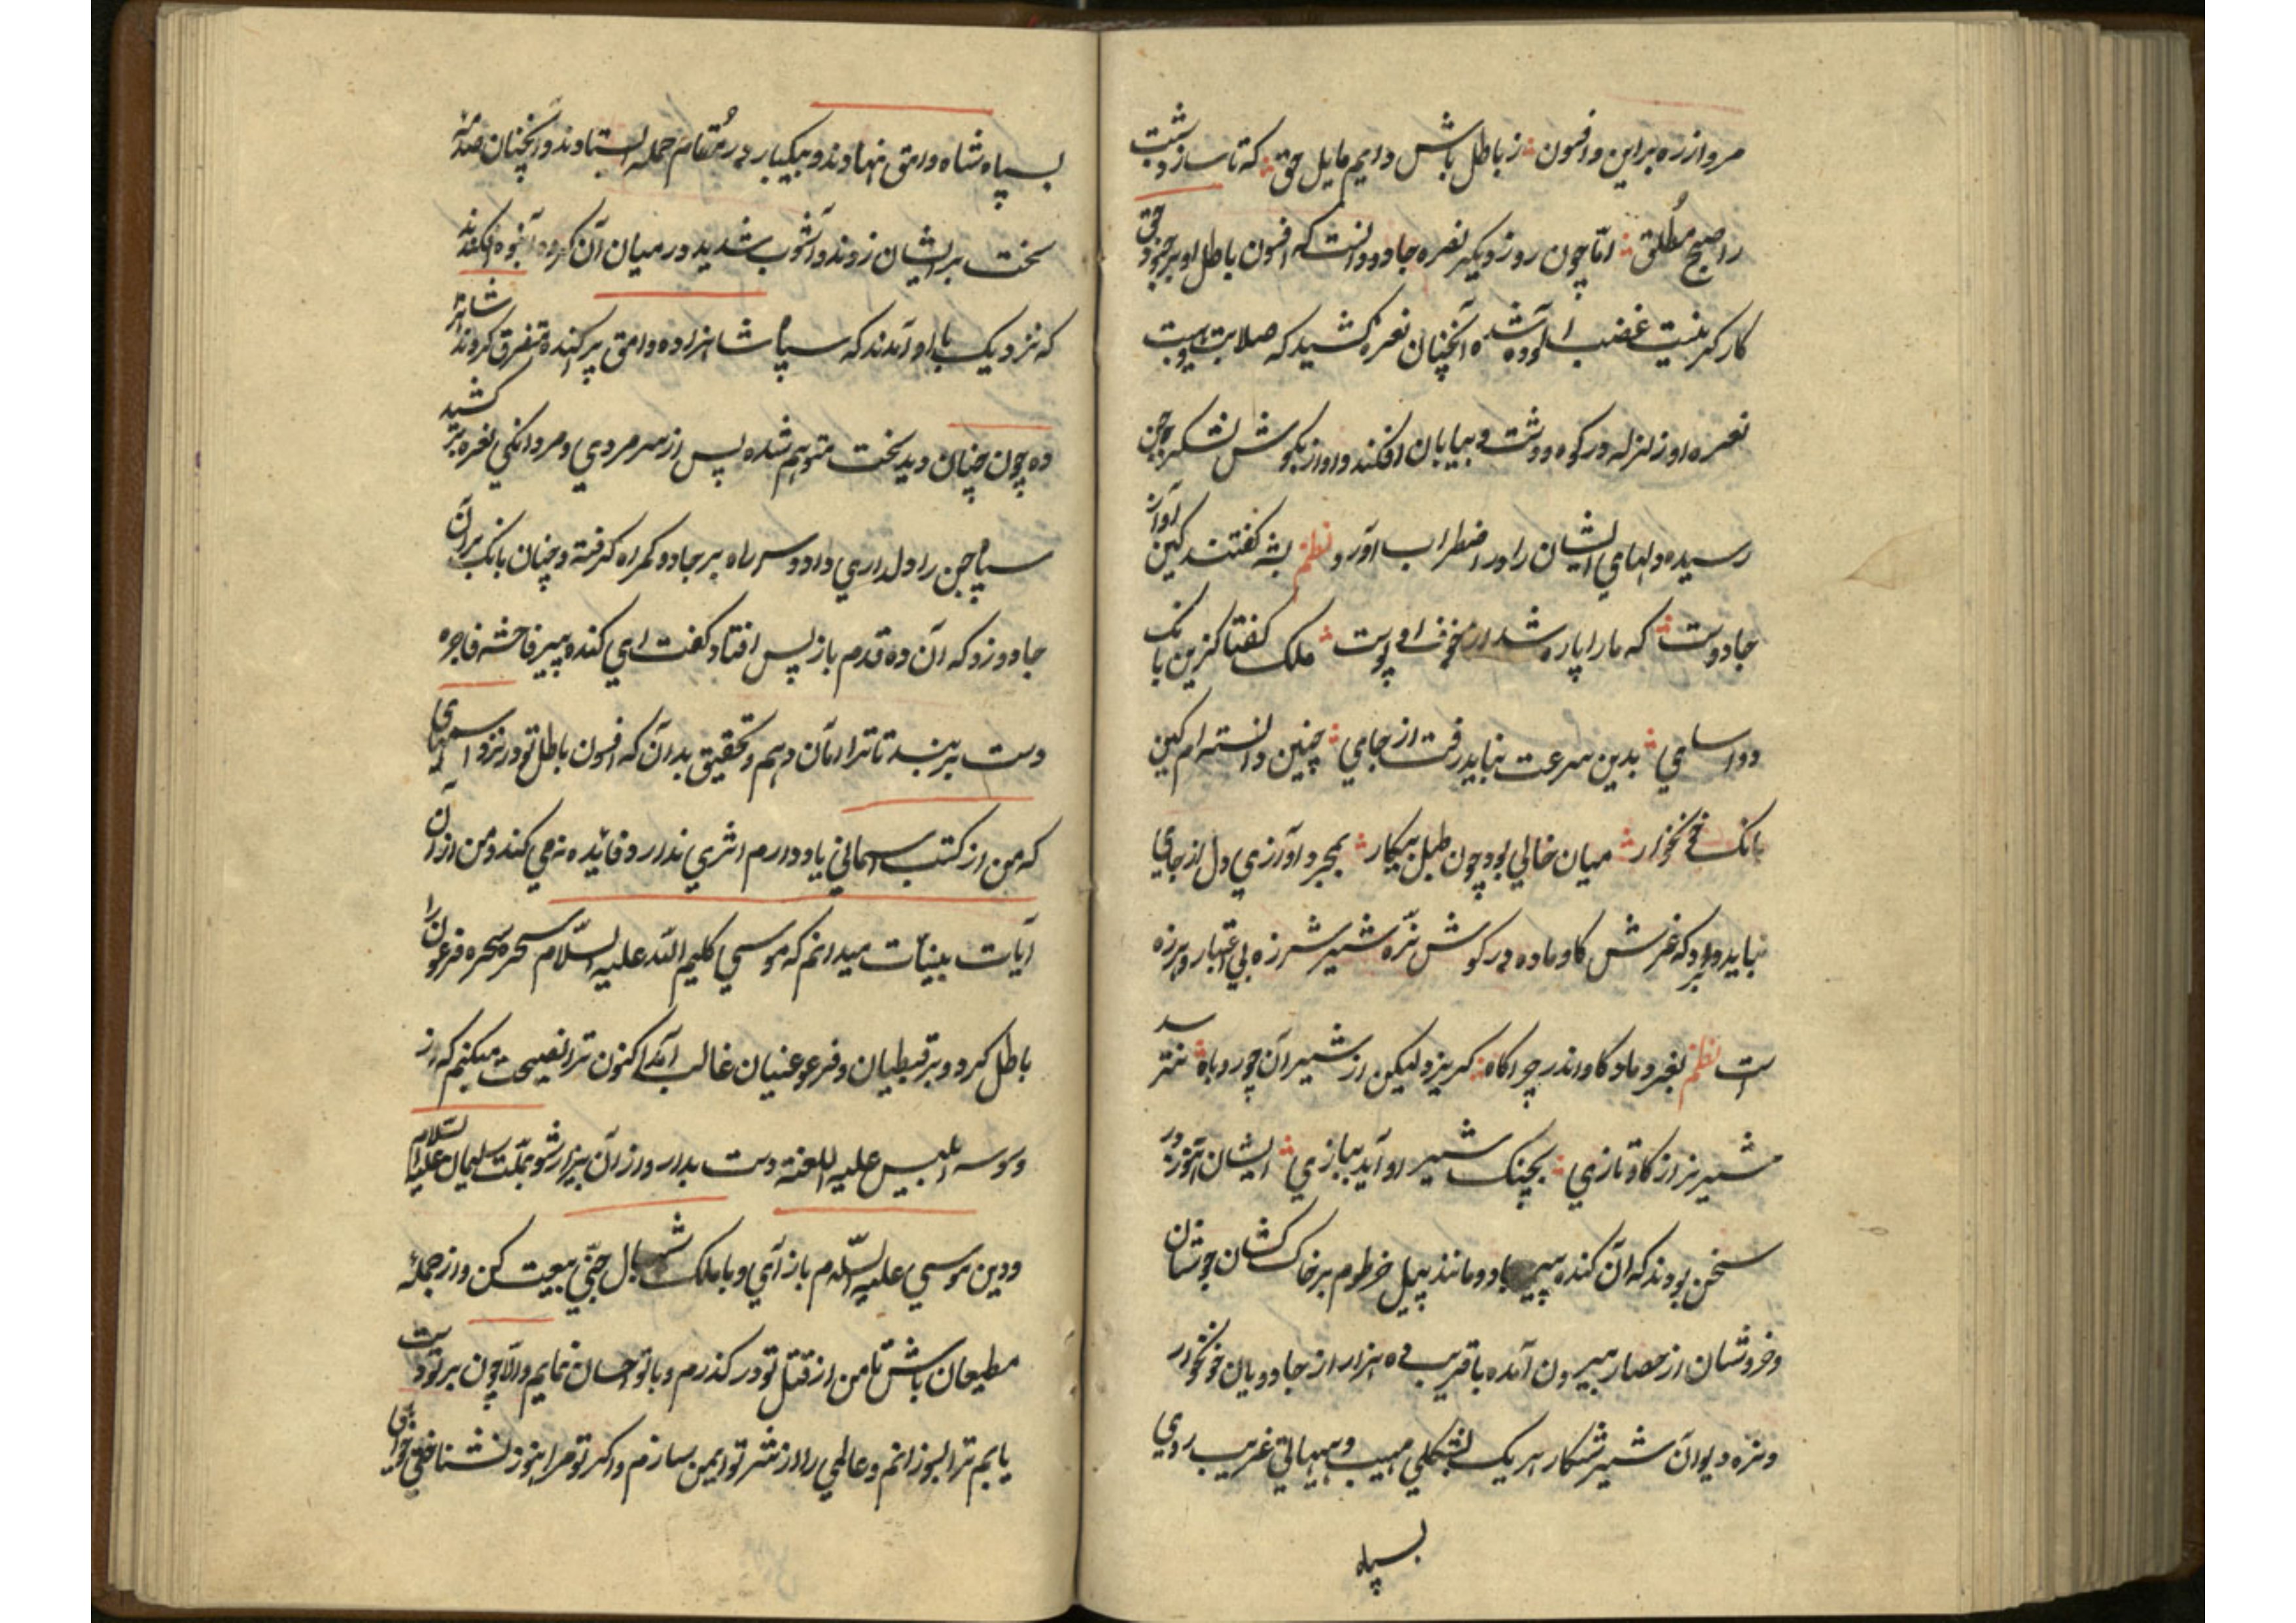 مرو از ره براین و افسون ؞ ز باطل باش دایم مایل حق ؞ که تا سازدت شب
را صبح مطلق ؞ امّا چون روز دیکر نعره جادو دانست که افسون باطل او بر جنود حق
کارکر نیست غضب آلوده شده آنچنان نعره کشید که صلابت و هیبت
نعره او زلزله در کوه و دشت و بیابان افکند و اواز بکوش لشکر جن
رسیده دلهای ایشان را در اضطراب آورد نظم بشه کفتند کین آواز
جادوست ؞ که ما را پاره شد از خوف او پوست ؞ ملک کفتا کزین بانک
دو اسامی ؞ بدین سرعت نباید رفت از جامی ؞ چنین دانسته ام کین
بانک خونخوار ؞ میان خالی بود چون طبل بیکار ؞ بمجرد آوازی دل از جای
نباید برد که غرش کاو ماده در کوش نرّه شیر شرزه بی اعتبار و هرزه
است نظم بغرد ماد کاو اندر چراکاه ؞ کریزد لیکن از شیر آن چو روباه ؞ نترسد
شیر نر از کاو تازی ؞ بچنک شیر او آید ببازی ؞ ایشان هنوز در
سخن بودند که آن کنده پیر جادو مانند پیل خرطوم بر خاک کشان جوشان
و خروشان از حصار بیرون آمده با قریب ده هزار از جادویان خونخوار
و نره دیوان شیر شکار هر یک بشکلی مهیب و بهیاتی غریب روی
بسپاه
بسپاه شاه وامق نهادند و بیکبار در مقام حمله ایستادند و آنچنان صدمه
سخت بر ایشان زدند و آشوب شدید در میان آن کروه انبوه افکندند
که نزدیک با او آمدند که سپاه شاهزاده وامق پرکنده و متفرق کردند شاهزا
ده چون چنان دید سخت متوهم شده پس از سر مردی و مردانکی نعره بر کشید
سپاه جن را دلداری داد و سر راه بر جادو کمراه کرفته و چنان بانک بر آن
جادو زد که آن ده قدم باز پس افتاد کفت ای کنده پیر فاحشه فاجره
دست بر بند تا ترا امان دهم و تحقیق بدان که افسون باطل تو در نزد اسمهای
که من از کتب آسمانی یاد دارم اثری ندارد و فایده نمی کند و من از آن
آیات بینات میدانم که موسی کلیم الله علیه السّلام سحره سحره فرعون را
باطل کرد و بر قبطیان و فرعونیان غالب آمد اکنون ترا نصیحت میکنم که از
وسوسه ابلیس علیه اللعنه دست بدار و از آن بیزار شو بملّت سلیمان علیه السلام
و دین موسی علیه السّلام باز آی و با ملک شهبال جنّی بیعت کن و از جمله
مطیعان باش تا من از قتل تو در کذرم و با تو احسان نمایم و الّا چون بر تو دست
یابم ترا بسوزانم و عالمی را از شر تو ایمن سازم و اکر تو مرا هنوز نشناختی